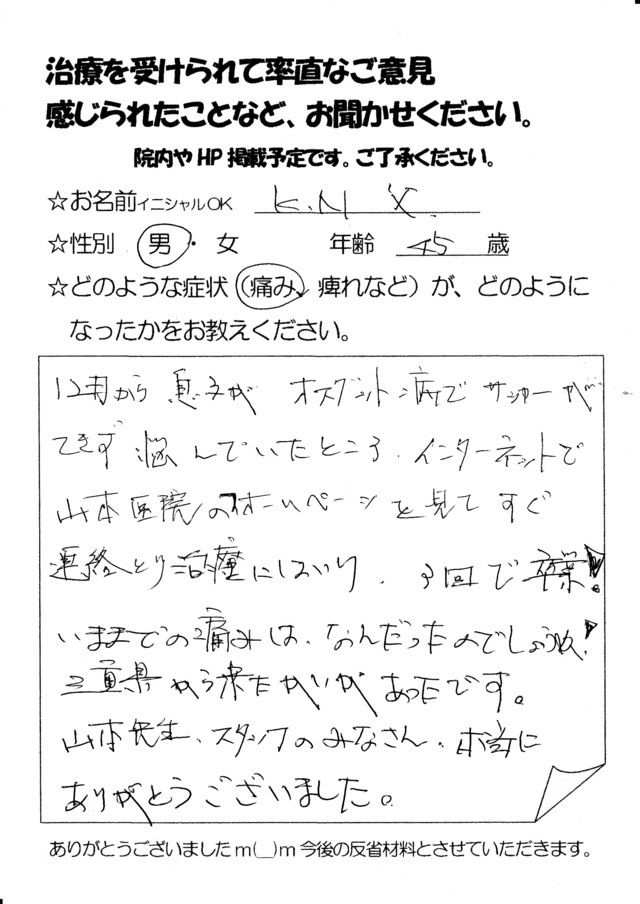 治療を受けられて率直なご意見
感じられたことなど、お聞かせください。
院内やHP掲載予定です。ご了承ください。
☆お名前イニシャルOK K.N
☆性別 男・女 年齢 45 歳
☆どのような症状(痛み、痺れなど)が、どのように
なったかをお教えください。
12月から息子がオスグット病でサッカーが
できず悩んでいたところ、インターネットで
山本医院のホームページを見てすぐ
連絡とり治療にはいり、3回で卒業!
いままでの痛みは、なんだったのでしょうね!
三重県から来たかいがあったです。
山本先生、スタッフのみなさん、本当に
ありがとうございました。
ありがとうございましたm(__)m今後の反省材料とさせていただきます。